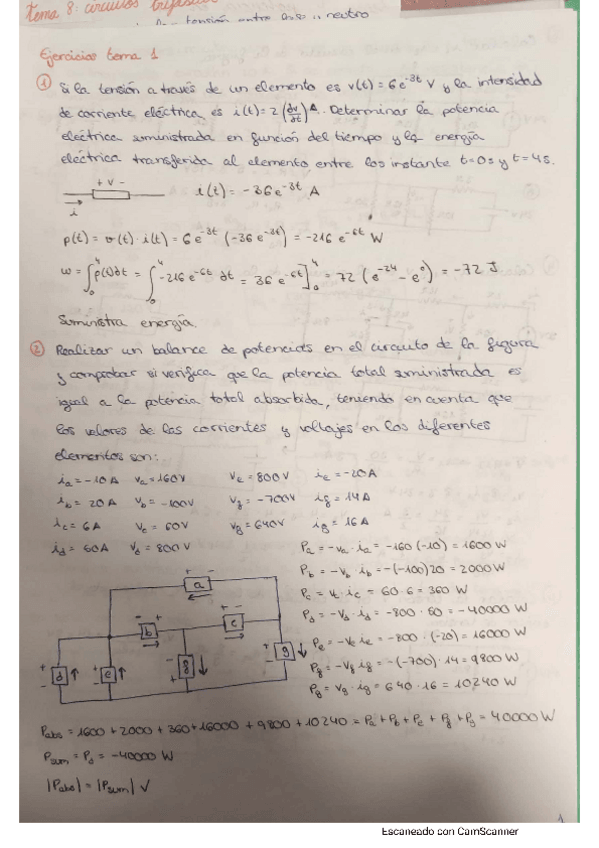 tema 8: circuitos
tensión entre fase y neutro
Ejercicios tema 1
① Si la tensión a través de un elemento es v(t) = 6e^-3t V y la intensidad
de corriente eléctrica es i(t) = 2(dv/dt) A. Determinar la potencia
eléctrica suministrada en función del tiempo y la energía
eléctrica transferida al elemento entre los instante t=0s y t=4s.
+ v -
i
i(t) = -36e^-3t A
p(t) = v(t)·i(t) = 6e^-3t (-36e^-3t) = -216e^-6t W
w = ∫₀⁴ p(t)dt = ∫₀⁴ -216e^-6t dt = 36e^-6t]₀⁴ = 72 (e^-24 - e^0) = -72 J
Suministra energía.
② Realizar un balance de potencias en el circuito de la figura
y comprobar si verifica que la potencia total suministrada es
igual a la potencia total absorbida, teniendo en cuenta que
los valores de las corrientes y voltajes en los diferentes
elementos son:
ia = -10A va = 160V ve = 800V ie = -20A
ib = 20A vb = -100V vf = -700V if = 14A
ic = 6A vc = 60V vg = 640V ig = 16A
id = 50A vd = 800V
Pa = -va·ia = -160(-10) = 1600W
Pb = -vb·ib = -(-100)20 = 2000W
Pc = vc·ic = 60·6 = 360W
Pd = -vd·id = -800·50 = -40000W
Pe = -ve ie = -800·(-20) = 16000W
Pf = -vf if = -(-700)·14 = 9800W
Pg = vg·ig = 640·16 = 10240W
+ a -
- b +
+ c -
+ d -
+ e -
- f +
+ g -
Pabs = 1600 + 2000 + 360 + 16000 + 9800 + 10240 = Pa + Pb + Pc + Pf + Pg = 40000W
Psum = Pd = -40000W
|Pabs| = |Psum| √
1
Escaneado con CamScanner